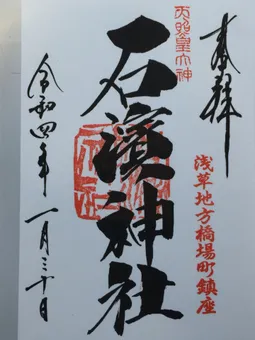 奉拝
浅草地方橋場町鎮座
天照皇大神
石濱神社
令和四年
一月三十日